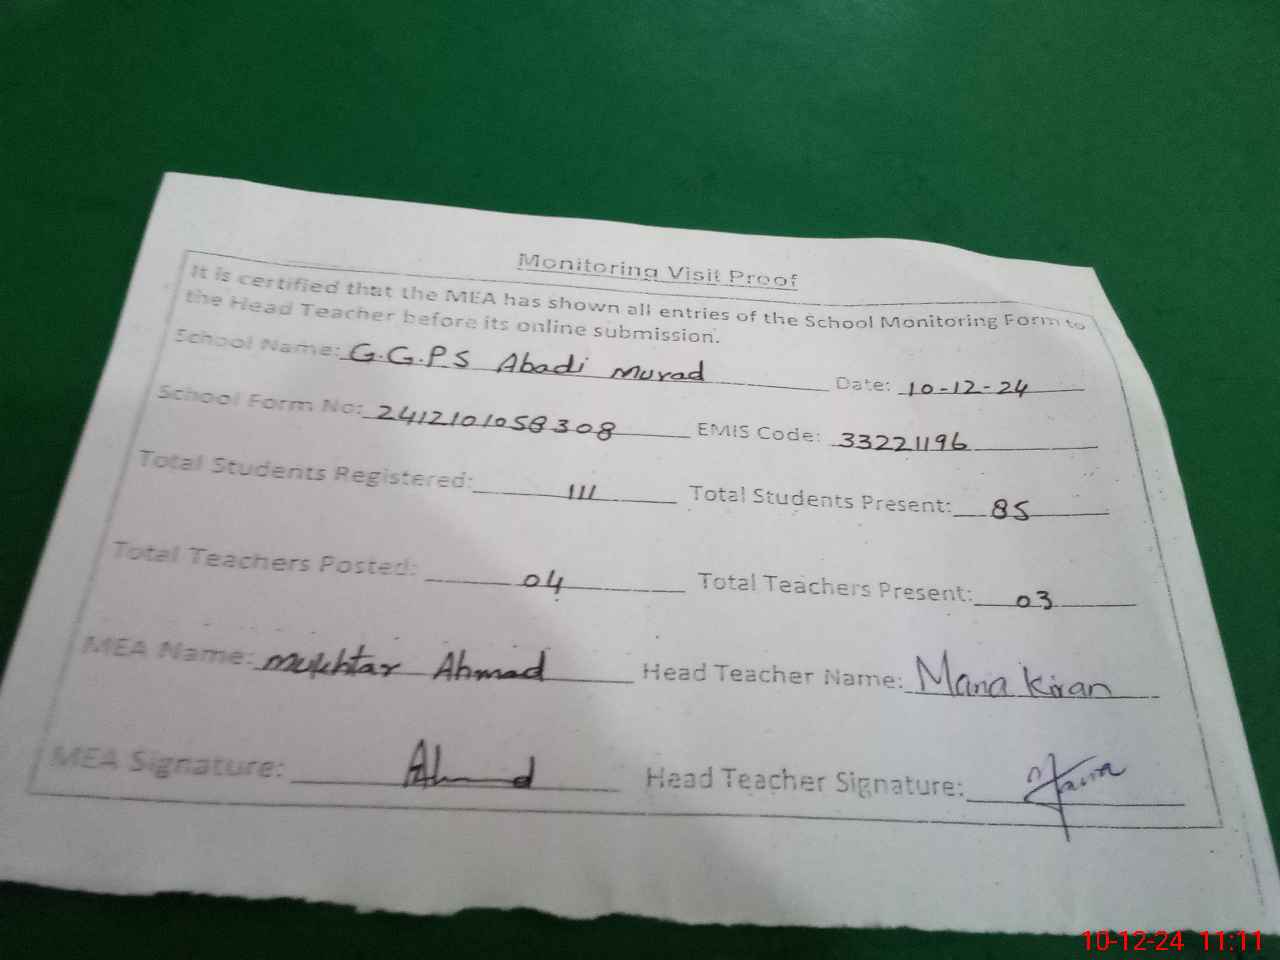 Monitoring Visit Proof
It is certified that the MEA has shown all entries of the School Monitoring Form to
the Head Teacher before its online submission.
School Name: G.G.P.S Abadi Murad Date: 10-12-24
School Form No: 2412101058308 EMIS Code: 33221196
Total Students Registered: 111 Total Students Present: 85
Total Teachers Posted: 04 Total Teachers Present: 03
MEA Name: Mukhtar Ahmad Head Teacher Name: Maria Kiran
MEA Signature: Ahmad Head Teacher Signature:
10-12-24 11:11